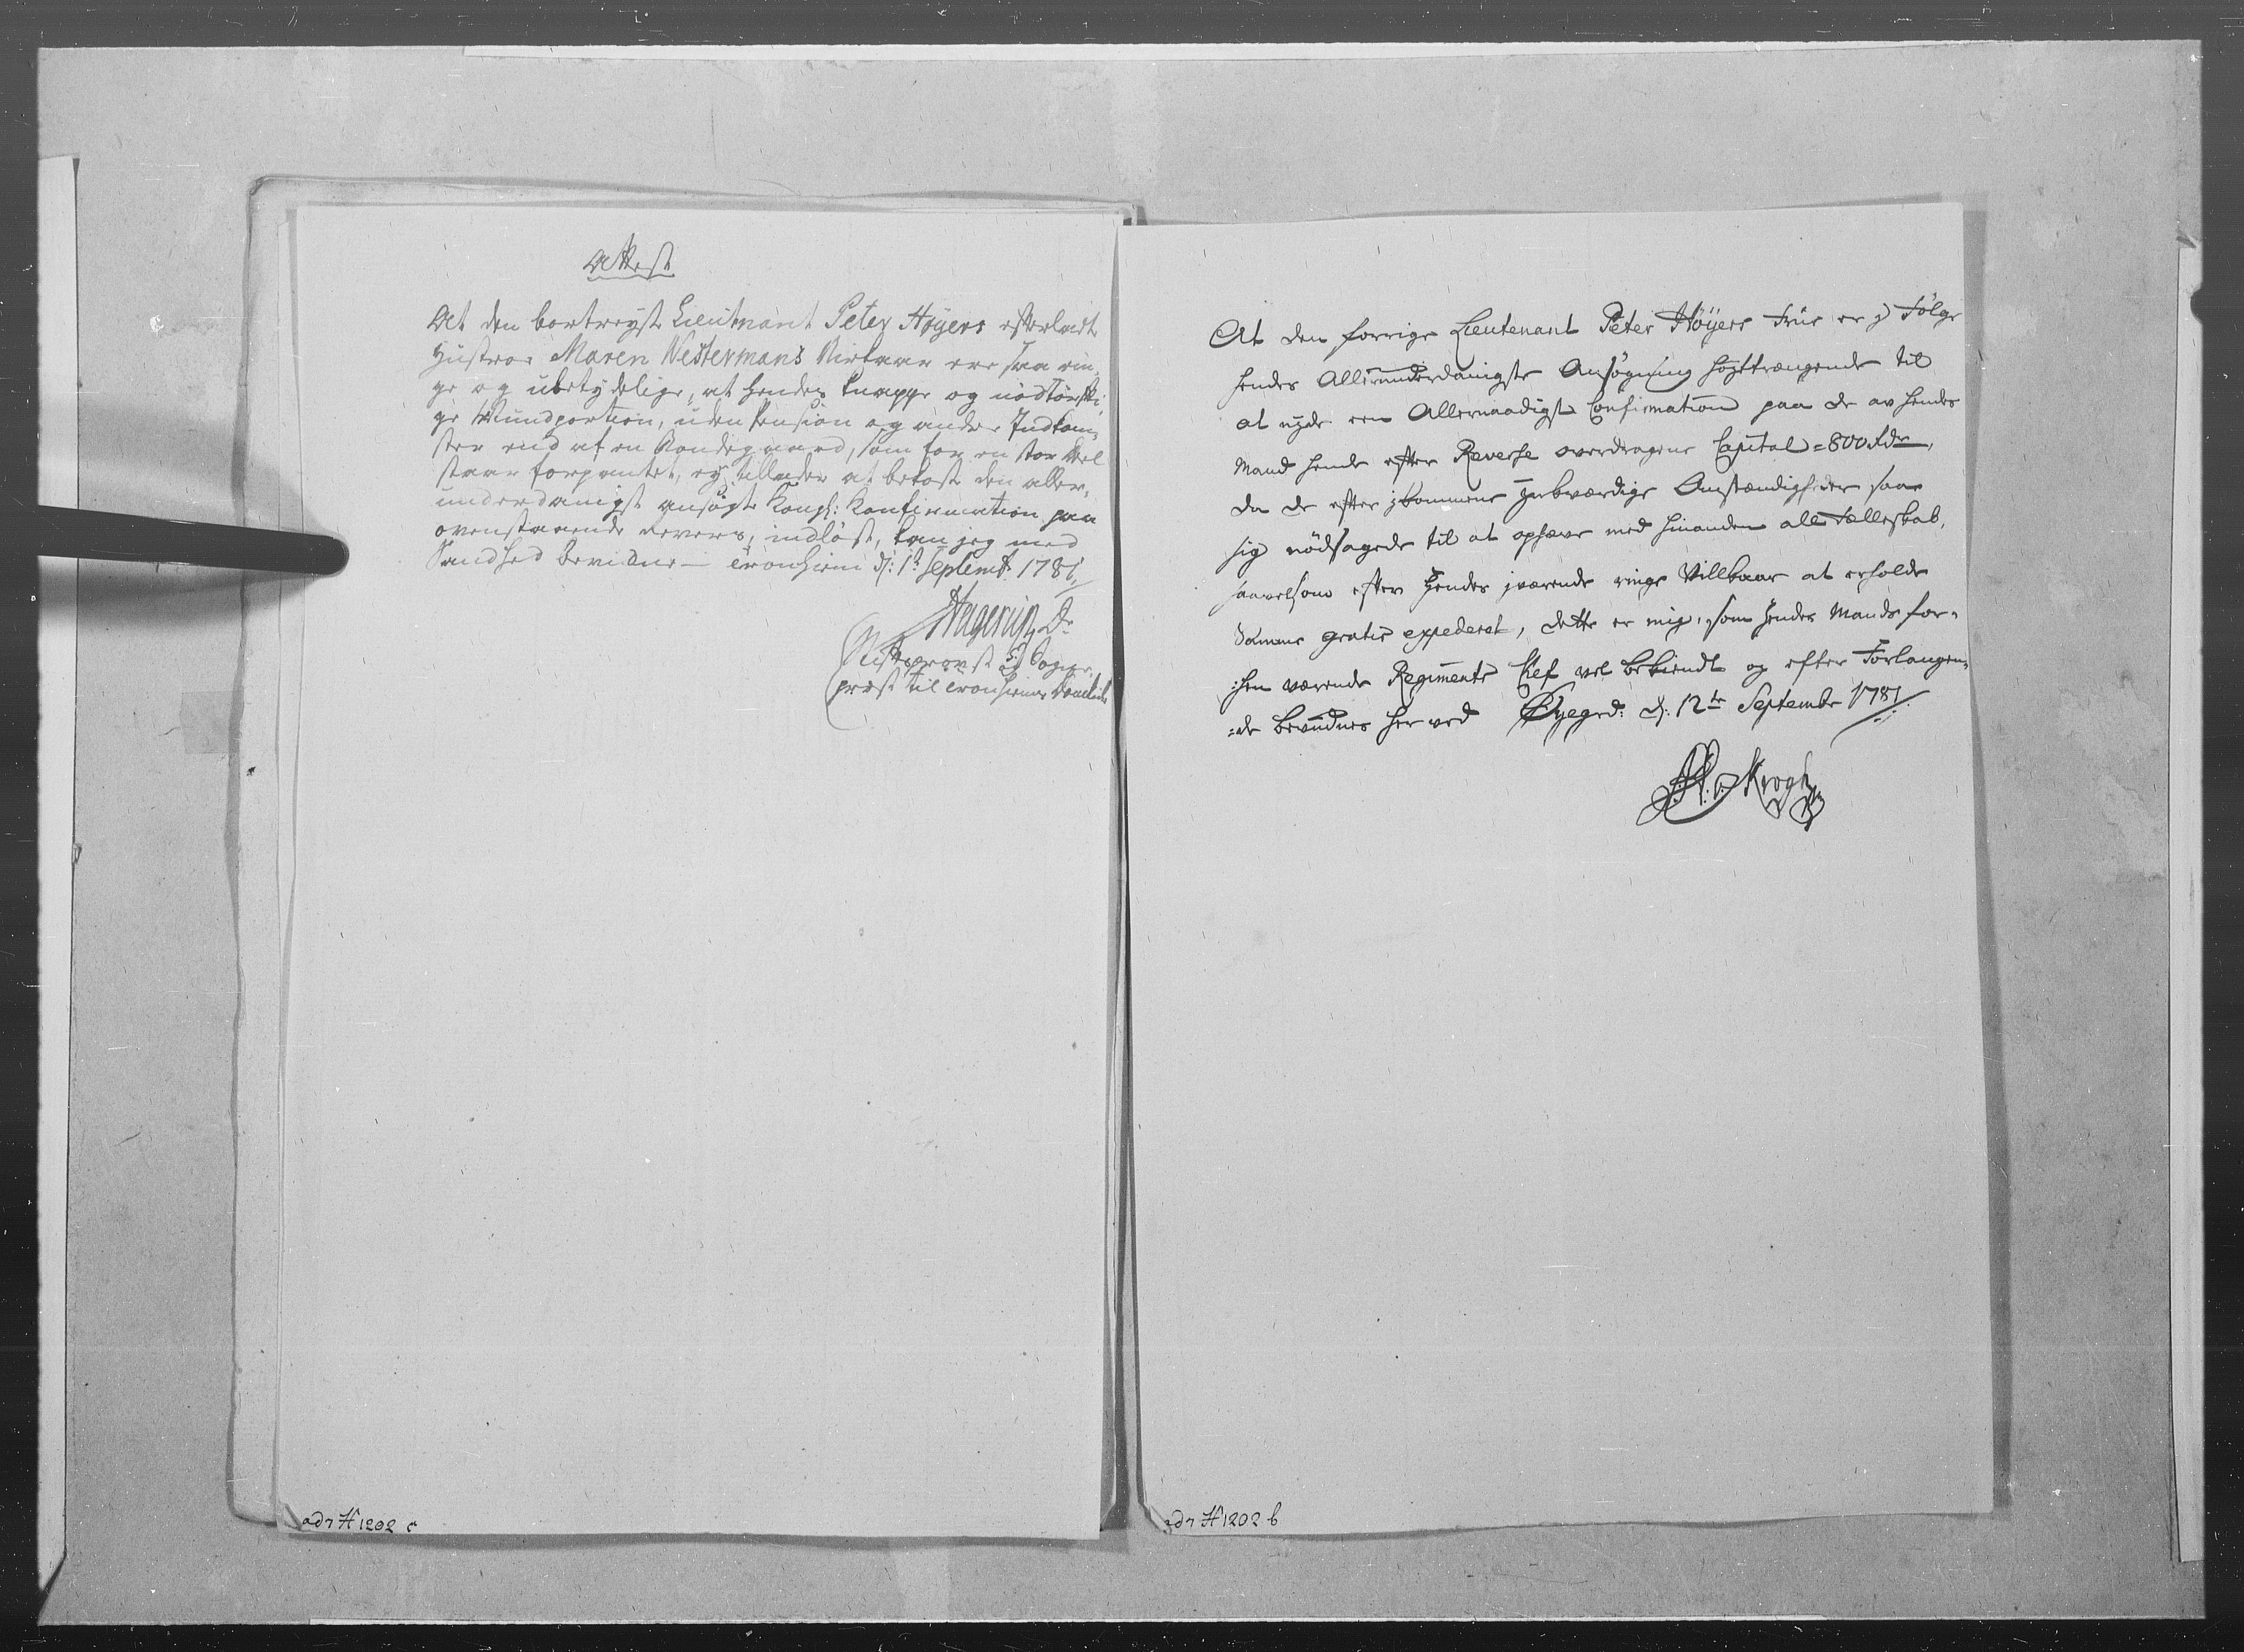 Attest
At den bortreyste Lieutnant Peter Høyers efterladte
Hustroe Maren Westermans Vilkaar ere saa rin,
ge og ubetydelige, at hendes knappe og nødtørfti,
ge Mundportion, uden Pension og andre Indkom,
ster end af en Bondegaard, som for en stor Deel
staar forpantet, ey tillader at bekoste den aller,
underdanigst ansøgte Kongl: Konfirmation paa
ovenstaaende Revers, indløst, kan jeg med
Sandhed bevidne — Tronhiem d: 1te Septembr 1781.
Hagerup Dr
Stiftsprovst og Sogne,
præst til Tronhiems Domkirke
ad 7 H 1202 c
At den forrige Lieutenant Peter Höyers Frue er j Følge
hendes Allerunderdanigste Ansøgning høysttrængende til
at nyde een Allernaadigst Confirmation paa de av hendes
Mand hende efter Reverse overdragene Capital = 800 Rdr,
da de efter jkommene Anstændigheder saae
sig nödsagede til at ophæve med hinanden all Fælleskab,
saavelsom efter Hendes jværende ringe Villkaar at erholde
Samme gratis expederet, dette er mig, som hendes Mands for=
:hen værende Regiments Chef vel bekiendt og efter Forlangen=
=de bevidnes her ved d: 12te Septembr 1781
v Krogh
ad 7 H 1202 b